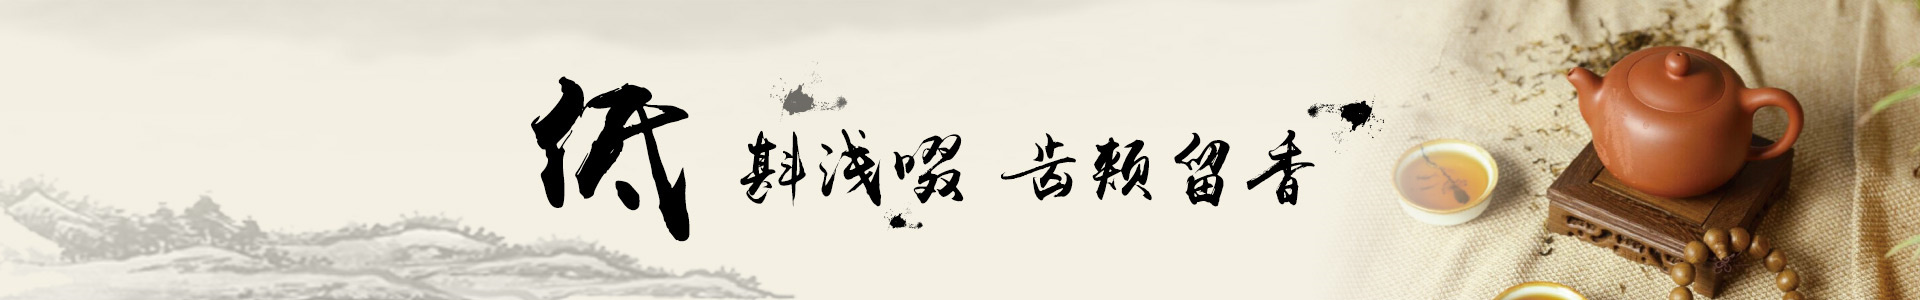 低斟浅啜 齿颊留香